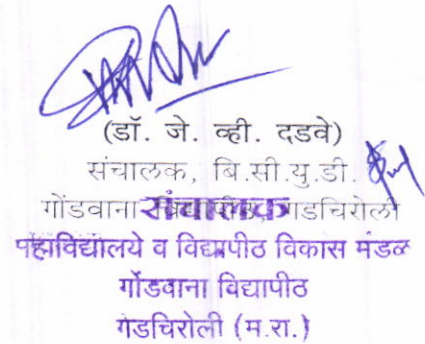 (डॉ. जे. व्ही. दडवे)
संचालक, बि.सी.यु.डी.
गोंडवाना विद्यापीठ, गडचिरोली
संचालक
महाविद्यालये व विद्यापीठ विकास मंडळ
गोंडवाना विद्यापीठ
गडचिरोली (म.रा.)